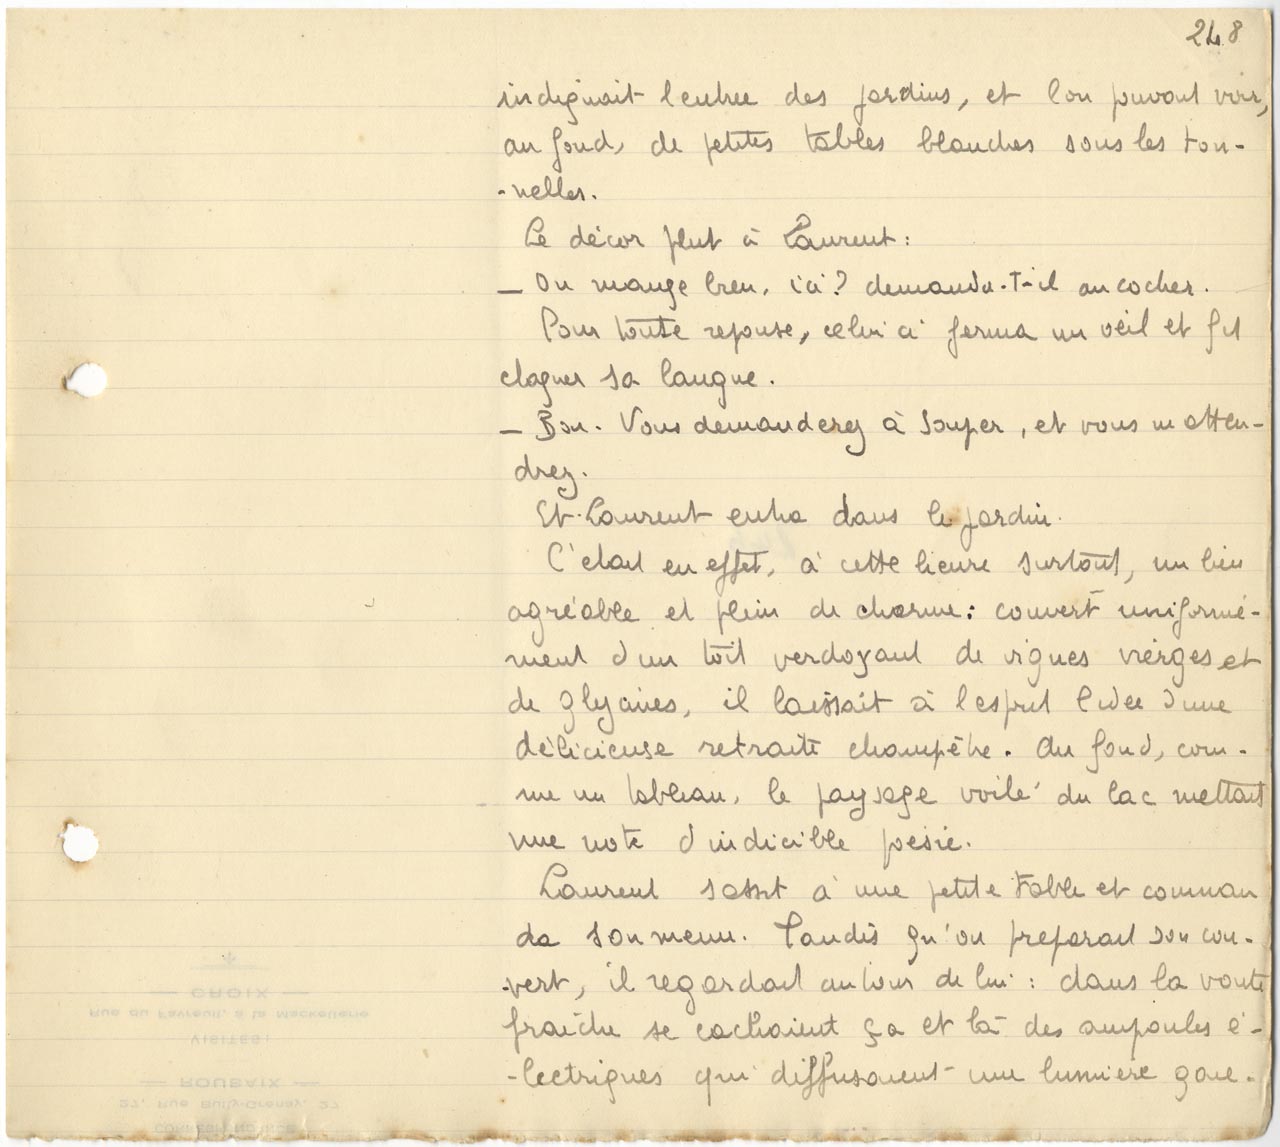 248
indiquait l'entrée des jardins, et l'on pouvait voir,
au fond, de petites tables blanches sous les ton-
-nelles.
Le décor plut à Laurent :
— On mange bien, ici ? demanda-t-il au cocher.
Pour toute reponse, celui ci ferma un oeil et fit
claquer sa langue.
— Bon. Vous demanderez à souper, et vous m'atten-
drez.
Et Laurent entra dans le jardin.
C'était en effet, à cette heure surtout, un lieu
agréable et plein de charme : couvert uniformé-
ment d'un toit verdoyant de vignes vierges et
de glycines, il laissait à l'esprit l'idée d'une
délicieuse retraite champêtre. Au fond, com-
me un tableau, le paysage voilé du lac mettait
une note d'indicible poésie.
Laurent s'assit à une petite table et comman
da son menu. Tandis qu'on préparait son cou-
-vert, il regardait autour de lui : dans la voute
fraîche se cachaient ça et là des ampoules é-
-lectriques qui diffusaient une lumière gaie.
CROIX
Rue du Favreuil, à la Mackellerie
VISITES:
ROUBAIX
27, Rue Bully-Grenay, 27
CORRESPONDANCE